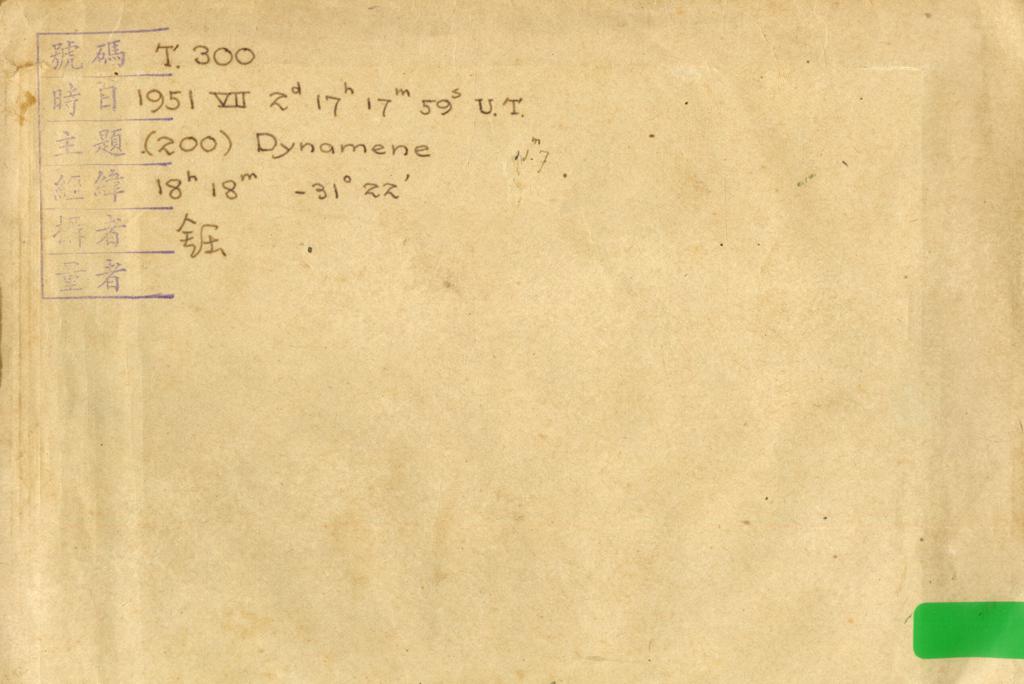 號碼 T. 300
時日 1951 VII 2ᵈ 17ʰ 17ᵐ 59ˢ U.T.
主題 (200) Dynamene
經緯 18ʰ 18ᵐ -31° 22'
者
量者